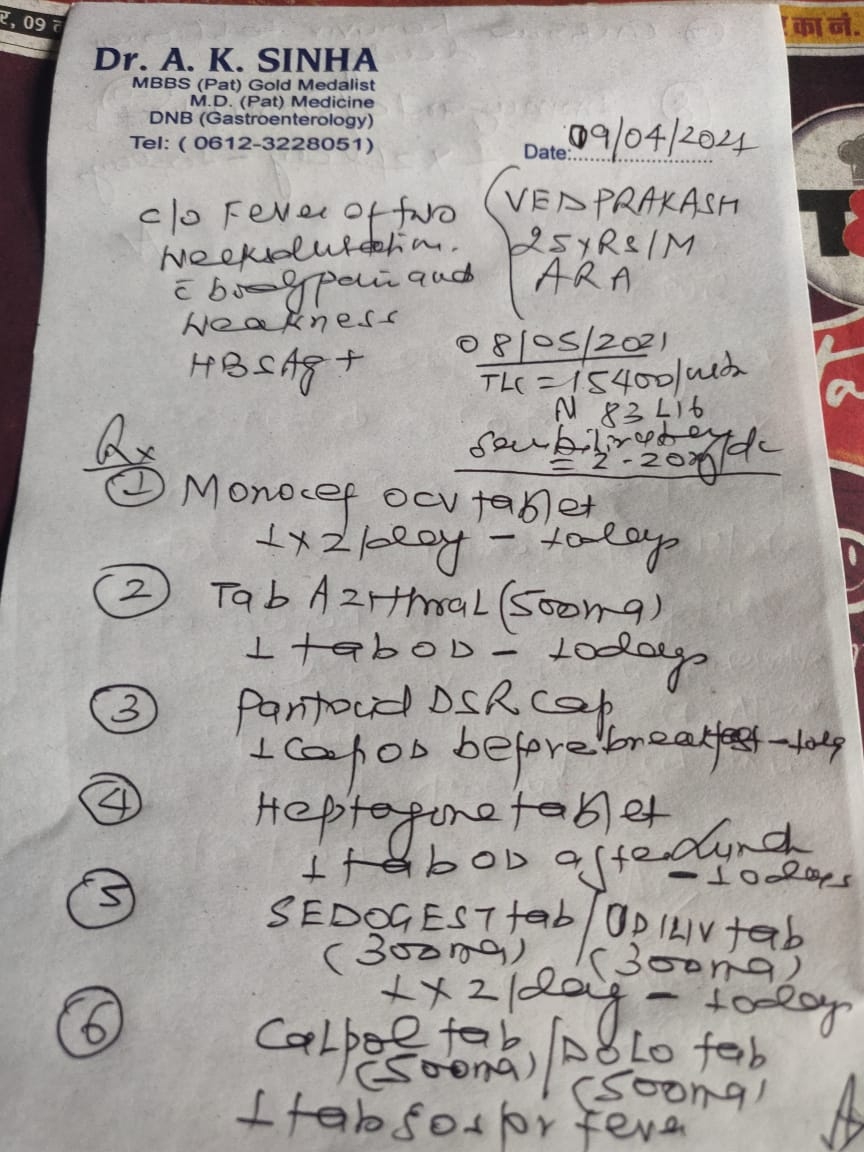 र, 09
का नं.
Dr. A. K. SINHA
MBBS (Pat) Gold Medalist
M.D. (Pat) Medicine
DNB (Gastroenterology)
Tel: ( 0612-3228051)
Date: 09/04/2021
c/o Fever of two
weeks duration.
c̄ body pain and
weakness
HBSAg +
VED PRAKASH
25YRS/M
ARA
08/05/2021
TLC = 15400/
N 83 L16
= 2.20mg/dc
Rx
① Monocef ocv tablet
1x2/day - 10days
② Tab Azithral (500mg)
1 tab OD - 10days
③ Pantocid DSR cap
1 cap OD before breakfast -
④ tablet
1 tab OD after Lunch
- 10days
⑤ tab / UDILIV tab
(300mg) (300mg)
1x2/day - 10days
⑥ Calpol tab / DOLO tab
(500mg) (500mg)
1 tab sos for fever